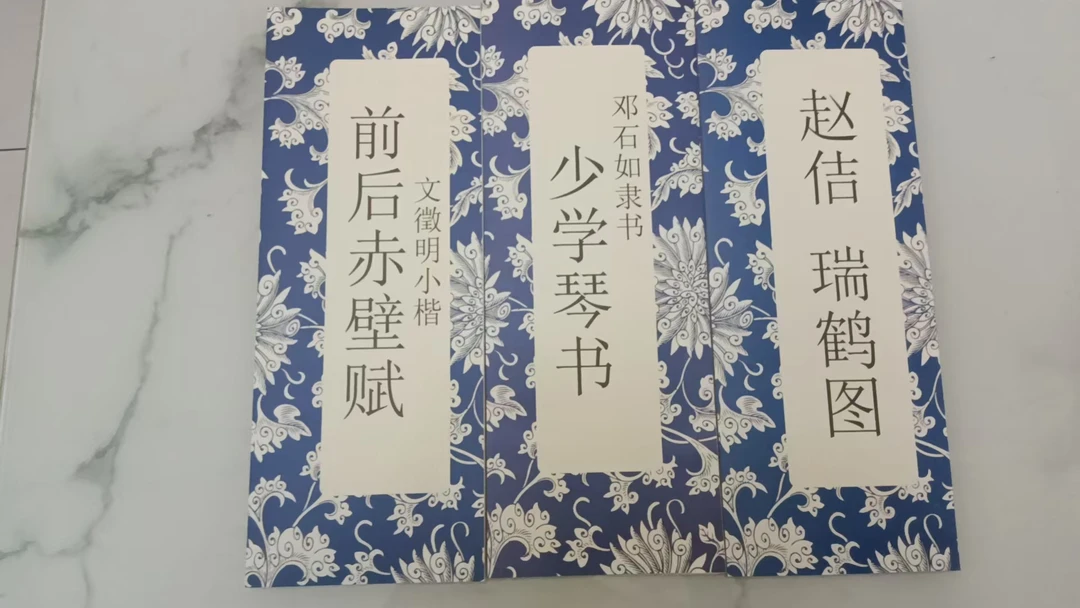 前后赤壁赋
文徵明小楷
邓石如隶书
少学琴书
赵佶 瑞鹤图